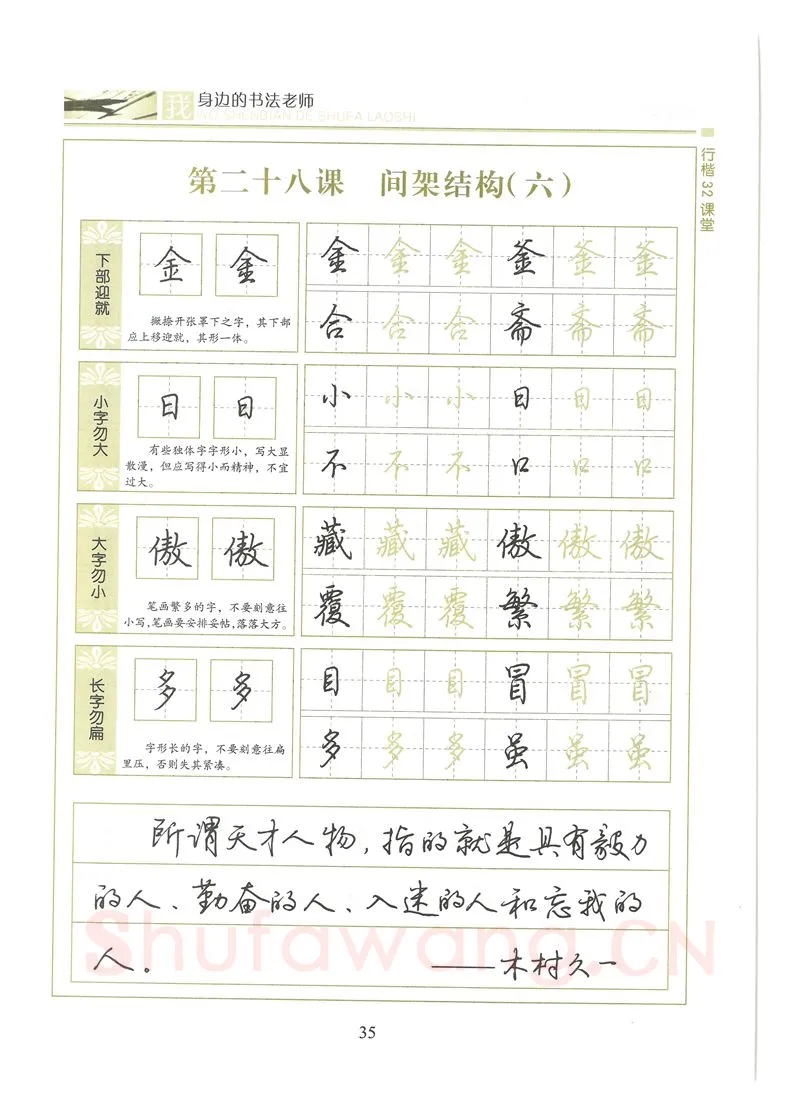 我 身边的书法老师
WO SHENBIAN DE SHUFA LAOSHI
行楷32课堂
第二十八课 间架结构(六)
下部迎就
金 金
撇捺开张罩下之字，其下部
应上移迎就，其形一体。
金 金 金 釜 釜 釜
合 合 合 斋 斋 斋
小字勿大
日 日
有些独体字字形小，写大显
散漫，但应写得小而精神，不宜
过大。
小 小 小 日 日 日
不 不 不 口 口 口
大字勿小
傲 傲
笔画繁多的字，不要刻意往
小写，笔画要安排妥帖，落落大方。
藏 藏 藏 傲 傲 傲
覆 覆 覆 繁 繁 繁
长字勿扁
多 多
字形长的字，不要刻意往扁
里压，否则失其紧凑。
目 目 目 冒 冒 冒
多 多 多 虽 虽 虽
所谓天才人物，指的就是具有毅力
的人、勤奋的人、入迷的人和忘我的
人。 ——木村久一
Shufawang.CN
35